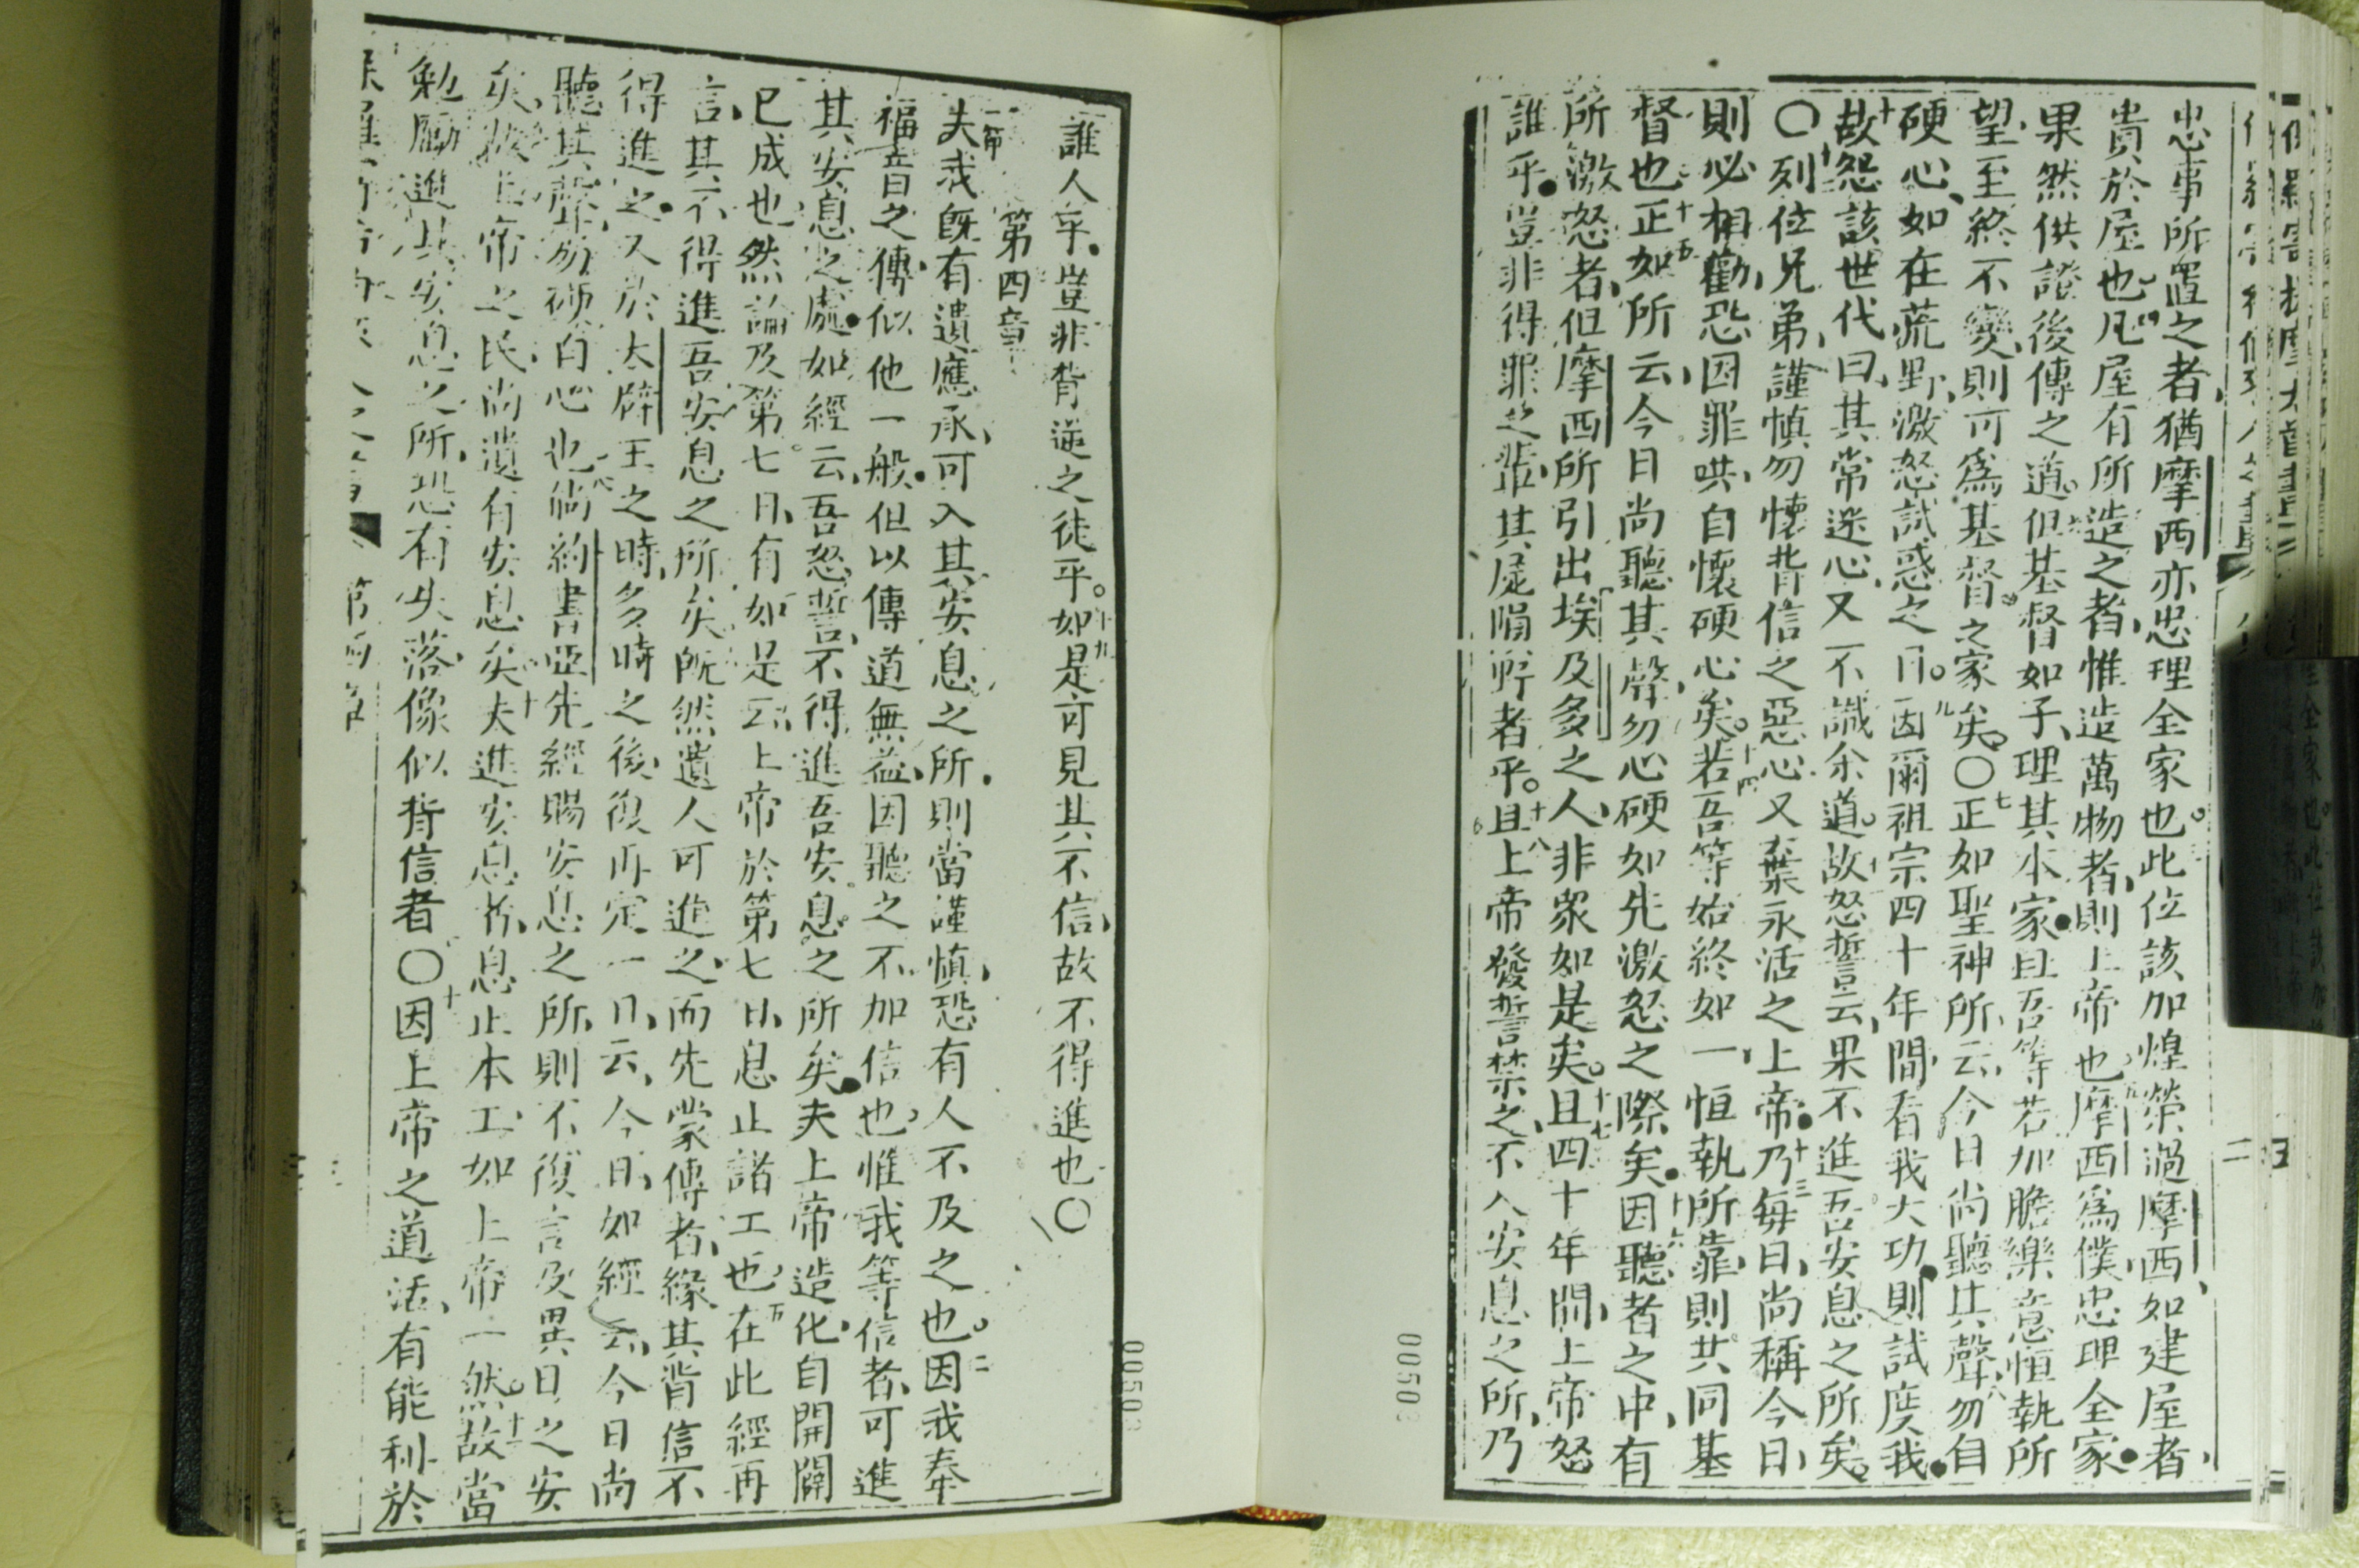 忠事所置之者、猶摩西亦忠理全家也。三此位該加煌榮過摩西、如建屋者、
貴於屋也。四凡屋有所造之者、惟造萬物者、則上帝也。五摩西爲僕、忠理全家、
果然供證後傳之道。六但基督如子、理其本家、且吾等若加膽樂意恒執所
望、至終不變、則可爲基督之家矣。〇七正如聖神所云、今日尚聽其聲、八勿自
硬心、如在荒野、激怒試惑之日。九因爾祖宗四十年間、看我大功、則試度我。
十故怨該世代曰、其常迷心、又不識余道。十一故怒誓云、果不進吾安息之所矣。
〇十二列位兄弟、謹慎勿懷背信之惡心、又棄永活之上帝、十三乃每日尚稱今日、
則必相勸、恐因罪哄、自懷硬心矣。十四若吾等始終如一、恒執所靠、則共同基
督也。十五正如所云、今日尚聽其聲、勿心硬如先激怒之際矣。十六因聽者之中、有
所激怒者、但摩西所引出埃及多之人、非衆如是矣。十七且四十年間、上帝怒
誰乎、豈非得罪之輩、其屍隕野者乎。十八且上帝發誓禁之、不入安息之所、乃
0050
誰人乎、豈非背逆之徒乎。十九如是可見其不信、故不得進也〇
第四章
一節
夫我旣有遺應承、可入其安息之所、則當謹慎、恐有人不及之也。二因我奉
福音之傳、似他一般、但以傳道無益、因聽之不加信也。惟我等信者、可進
其安息之處、如經云、吾怒誓、不得進吾安息之所矣、夫上帝造化、自開闢
已成也。然論及第七日、有如是云、上帝於第七日、息止諸工也、五在此經再
言、其不得進吾安息之所矣。旣然遺人可進之、而先蒙傳者、緣其背信不
得進之、又於大辟王之時、多時之後、復再定一日、云、今日、如經云、今日尚
聽其聲、勿硬自心也。八倘約書亞先經賜安息之所、則不復言及異日之安
矣、故上帝之民、尚遺有安息矣。十夫進安息者、息止本工、如上帝一然。十一故當
勉勵進其安息之所、恐有失落、像似背信者〇十因上帝之道活、有能利於
0050